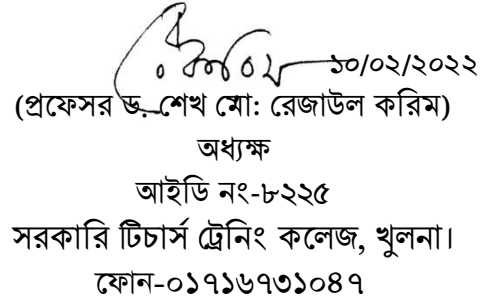 ১০/০২/২০২২
(প্রফেসর ড. শেখ মো: রেজাউল করিম)
অধ্যক্ষ
আইডি নং-৮২২৫
সরকারি টিচার্স ট্রেনিং কলেজ, খুলনা।
ফোন-০১৭১৬৭৩১০৪৭